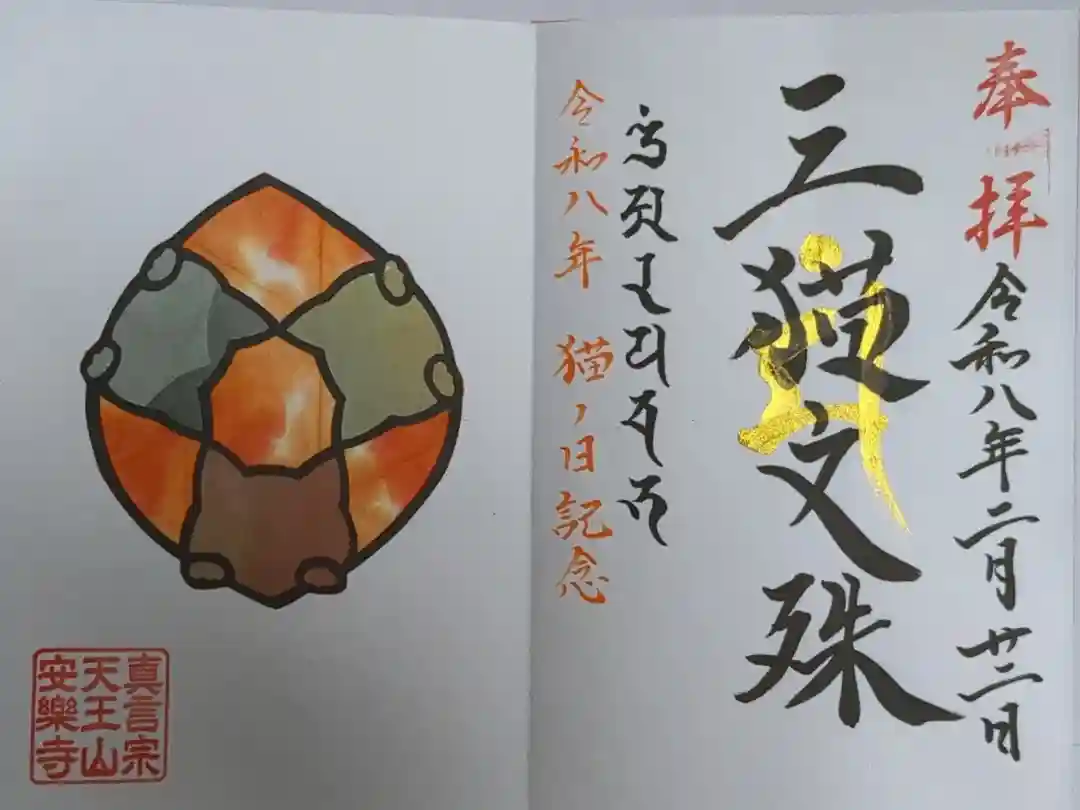 奉拝
令和八年二月廿二日
三猫文殊
令和八年 猫ノ日記念
真言宗
天王山
安樂寺